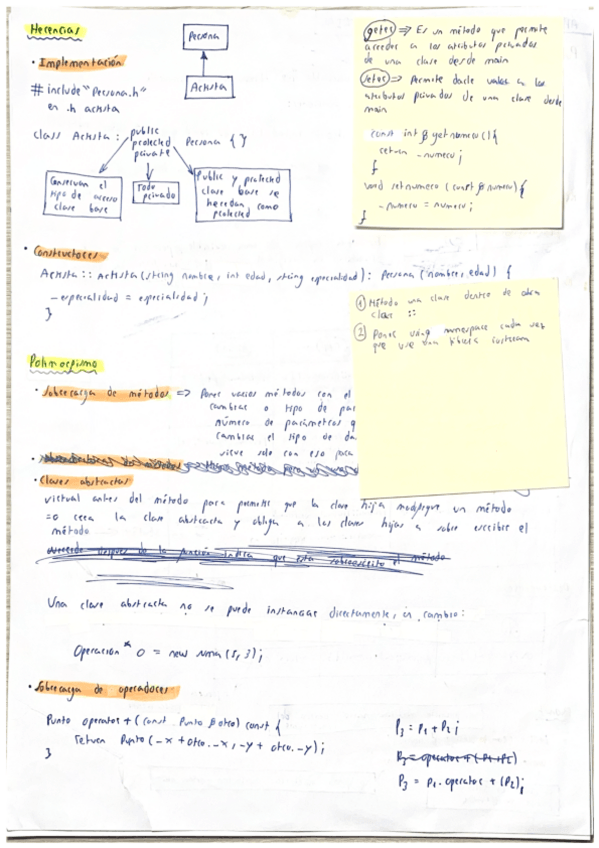 Herencias
Persona
Artista
• Implementación
# include "Persona.h"
en .h artista
class Artista : public
protected
private
Persona { }
Conservan el
tipo de acceso
clase base
Todo
privado
Public y protected
clase base se
heredan como
protected
getter => Es un método que permite
acceder a los atributos privados
de una clase desde main
setter => Permite darle valor a los
atributos privados de una clase desde
main
const int & getnumero(){
return _numero;
}
void setnumero (const & numero){
_numero = numero;
}
• Constructores
Artista :: Artista (string nombre, int edad, string especialidad): Persona (nombre, edad) {
_especialidad = especialidad;
}
① Método una clase dentro de otra
clase ::
② Poner using namespace cada vez
que use una librería
Polimorfismo
• Sobrecarga de métodos => Poner varios métodos con el
cambiar o tipo de par
número de parámetros
cambiar el tipo de da
sirve solo con eso para
• Clases abstractas
virtual antes del método para permitir que la clase hija modifique un método
=0 crea la clase abstracta y obliga a las clases hijas a sobre escribir el
método
después de la función indica que esta sobreescrito el método
Una clase abstracta no se puede instanciar directamente, en cambio:
Operacion * o = new suma (5, 3);
• Sobrecarga de operadores
Punto operator + (const Punto & otro) const {
return Punto (_x + otro._x, _y + otro._y);
}
P3 = P1 + P2;
P3 = operator + (P1 + P2)
P3 = P1.operator + (P2);